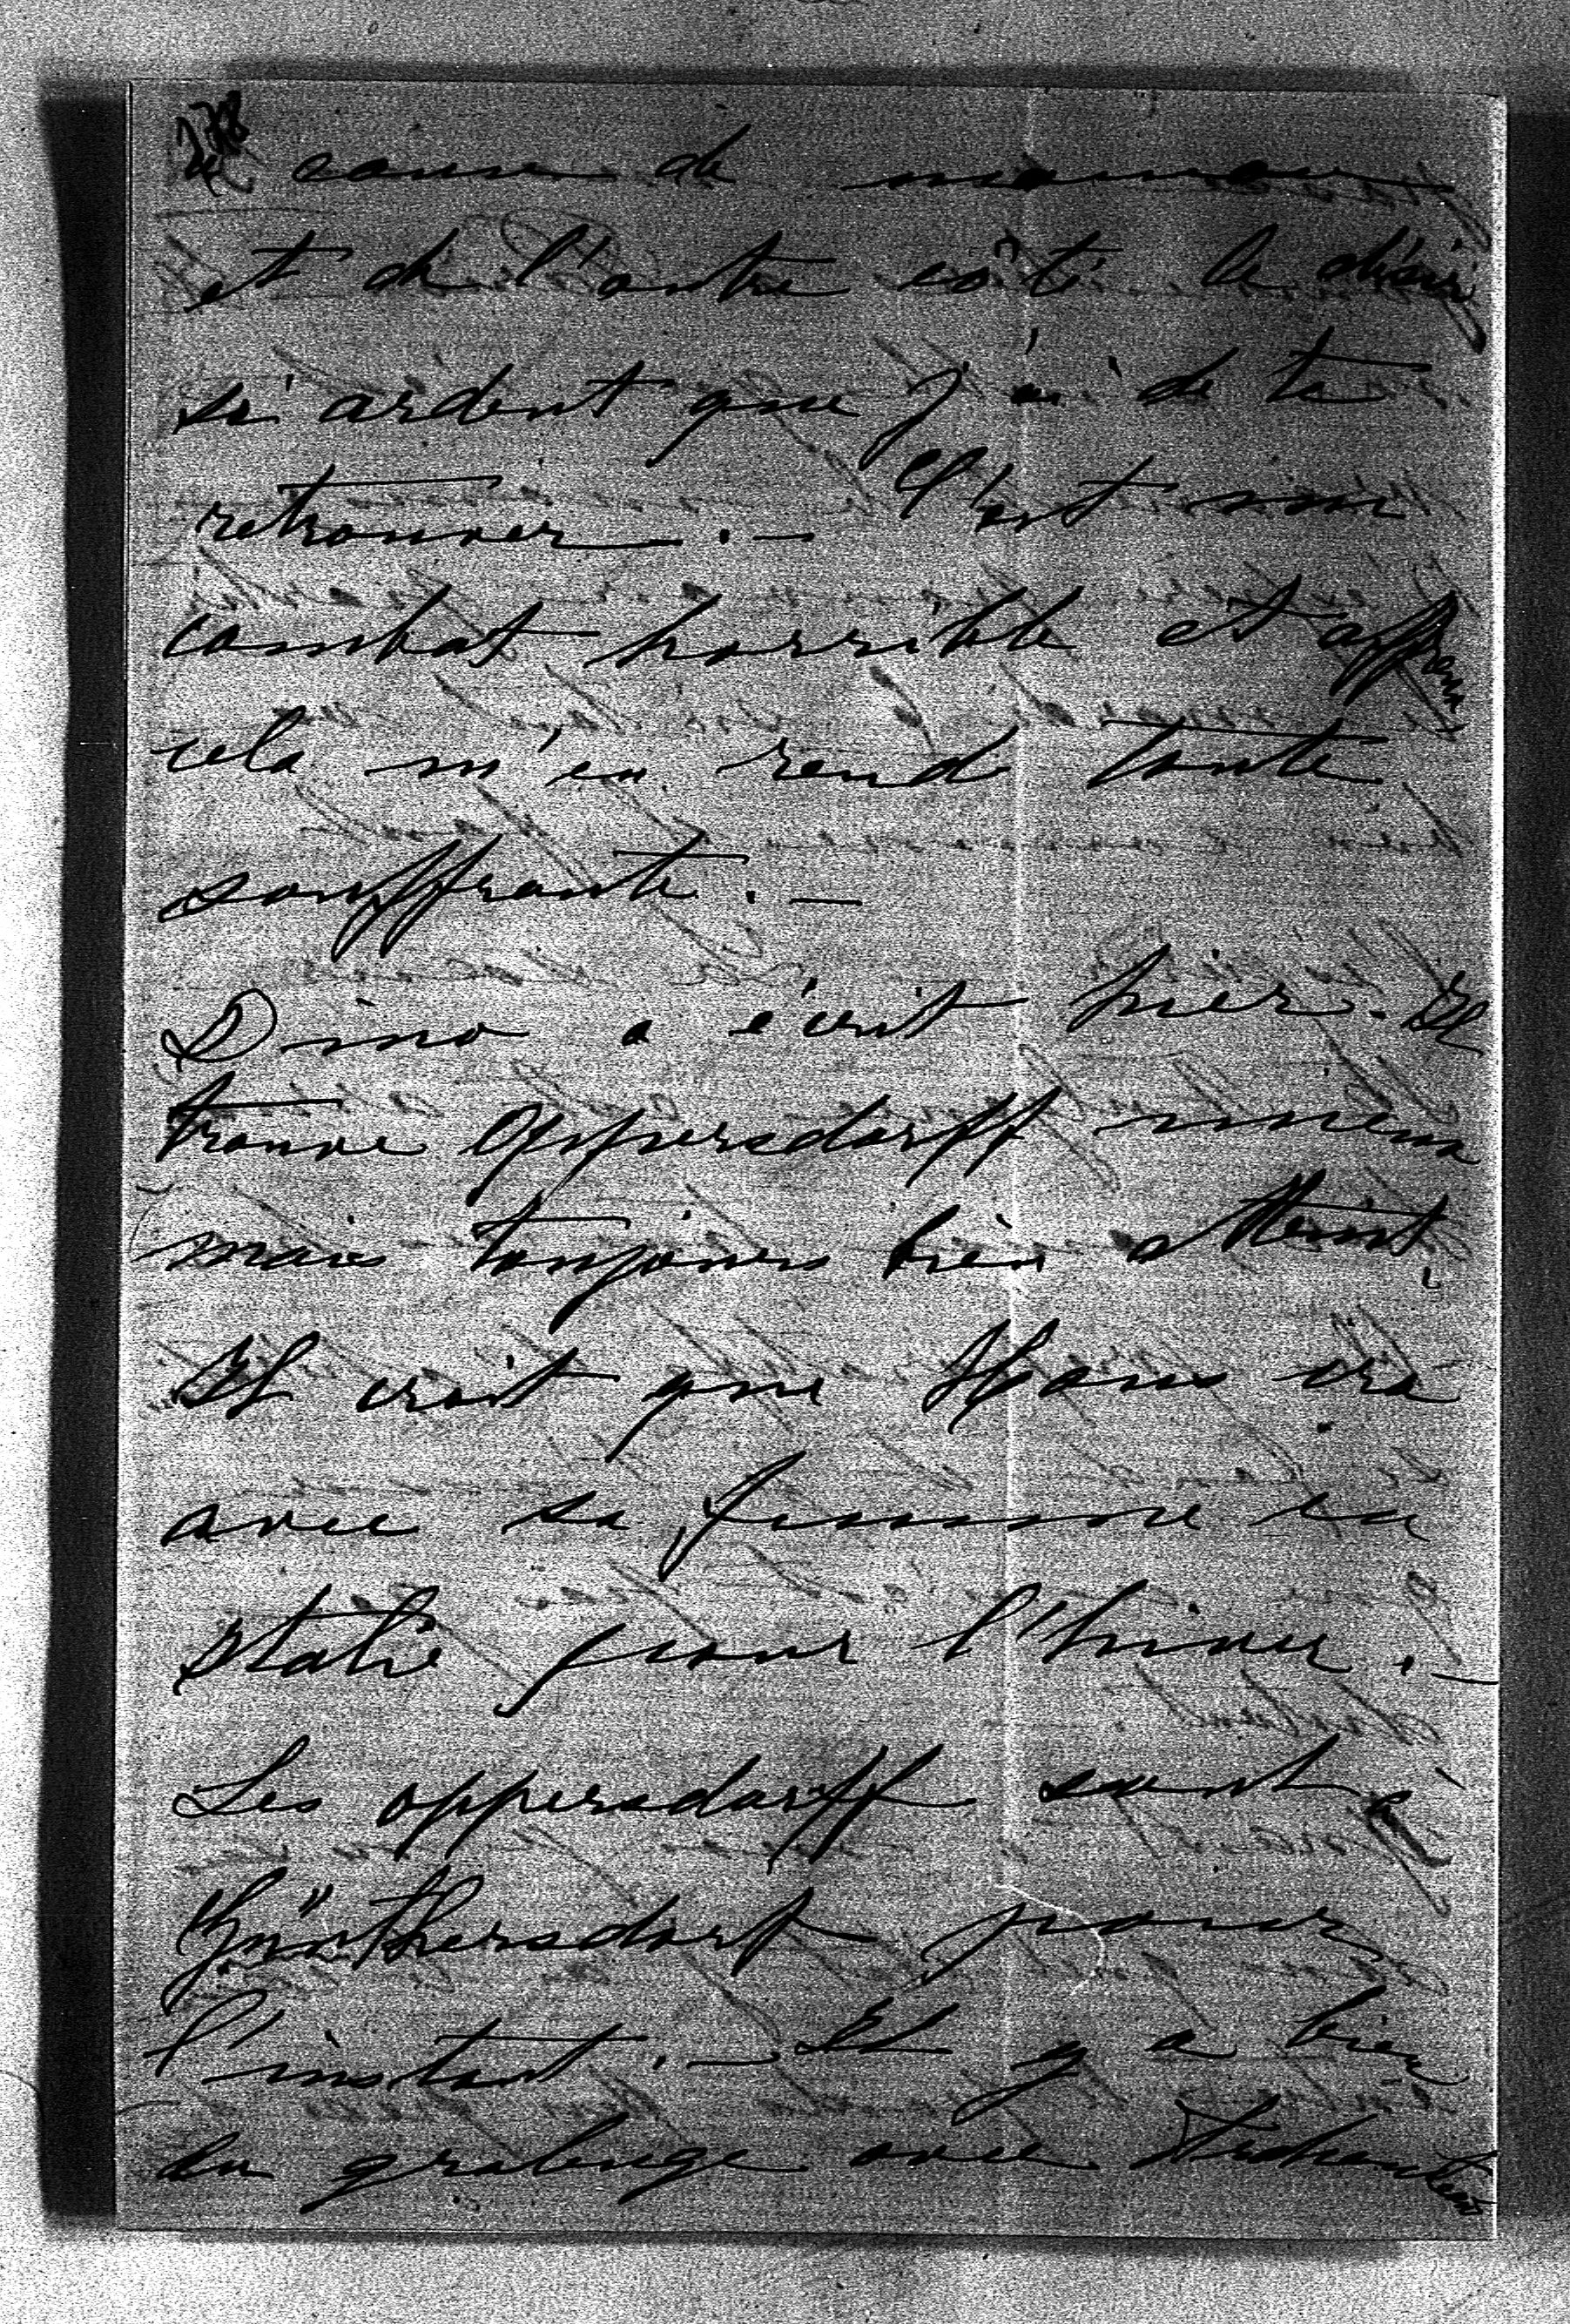 cause de maman
et de l'autre côté le désir
si ardent que j'ai de te
retrouver. — C'est un
combat horrible et affreux
cela m'en rend toute
souffrante. —
Dino a écrit hier. Il
trouve Oppersdorff mieux
mais toujours bien atteint,
Il croit que Hans ira
avec sa femme en
Italie pour l'hiver. —
Les Oppersdorff sont à
Günthersdorf pour
l'instant. — Il y a bien
du grabuge avec